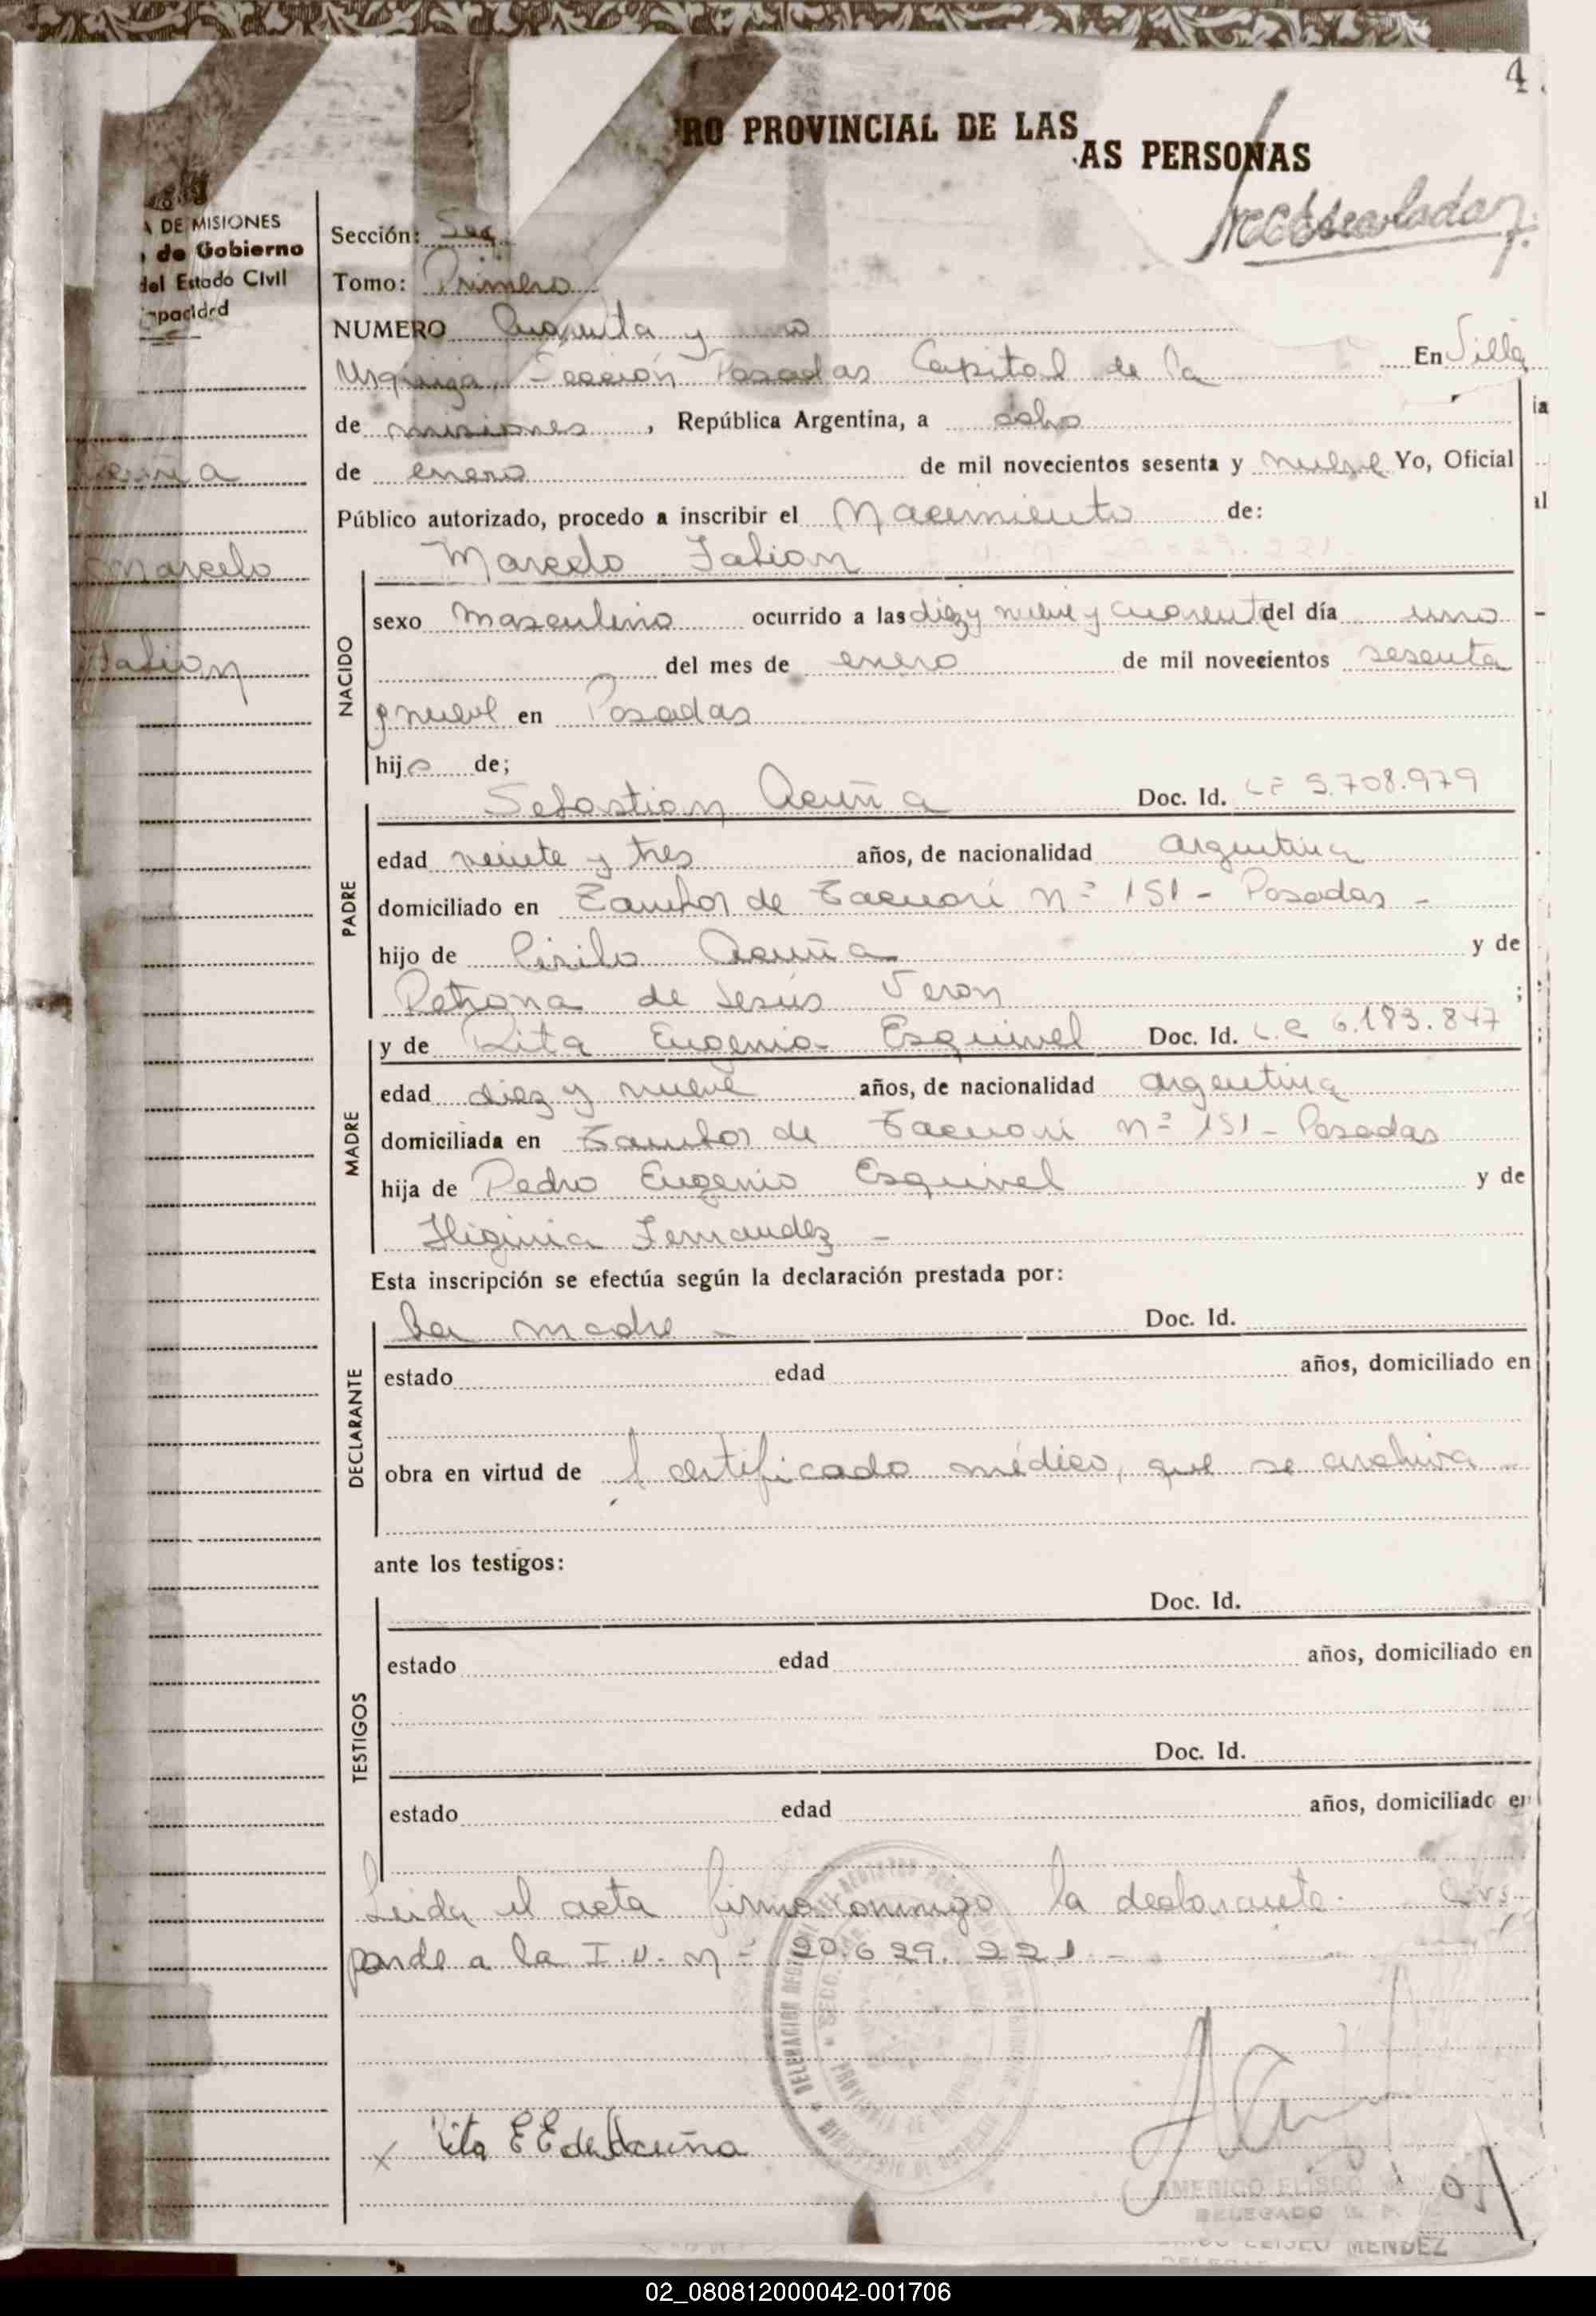 4
RO PROVINCIAL DE LAS
AS PERSONAS
A DE MISIONES
de Gobierno
del Estado Civil
apacidad
Sección:
Tomo: Primero
NUMERO Cuarenta y uno
En Villa
Urquiza, Sección Posadas Capital de la
de misiones, República Argentina, a ocho
de enero de mil novecientos sesenta y nueve Yo, Oficial
Público autorizado, procedo a inscribir el Nacimiento de:
Marcelo Fabian
Marcelo
Fabian
NACIDO
sexo masculino ocurrido a las diez y nueve y cuarenta del día uno
del mes de enero de mil novecientos sesenta
y nueve en Posadas
hijo de;
PADRE
Sebastian Acuña Doc. Id. 5.708.979
edad veinte y tres años, de nacionalidad argentina
domiciliado en Tambor de Tacuari nº 151 - Posadas -
hijo de Cirilo Acuña y de
Petrona de Jesús Veron ;
MADRE
y de Rita Eugenia Esquivel Doc. Id. L.C 6.183.847
edad diez y nueve años, de nacionalidad argentina
domiciliada en Tambor de Tacuari nº 151 - Posadas
hija de Pedro Eugenio Esquivel y de
Higinia Fernandez -
Esta inscripción se efectúa según la declaración prestada por:
DECLARANTE
La madre - Doc. Id.
estado edad años, domiciliado en
obra en virtud de certificado médico, que se archiva -
ante los testigos:
TESTIGOS
Doc. Id.
estado edad años, domiciliado en
Doc. Id.
estado edad años, domiciliado en
Leida el acta firma conmigo la declarante.
ponde a la I.U. nº 20.629.221 -
Rita E E de Acuña
AMERICO ELISEO
DELEGADO
ELISEO MENDEZ
02_080812000042-001706